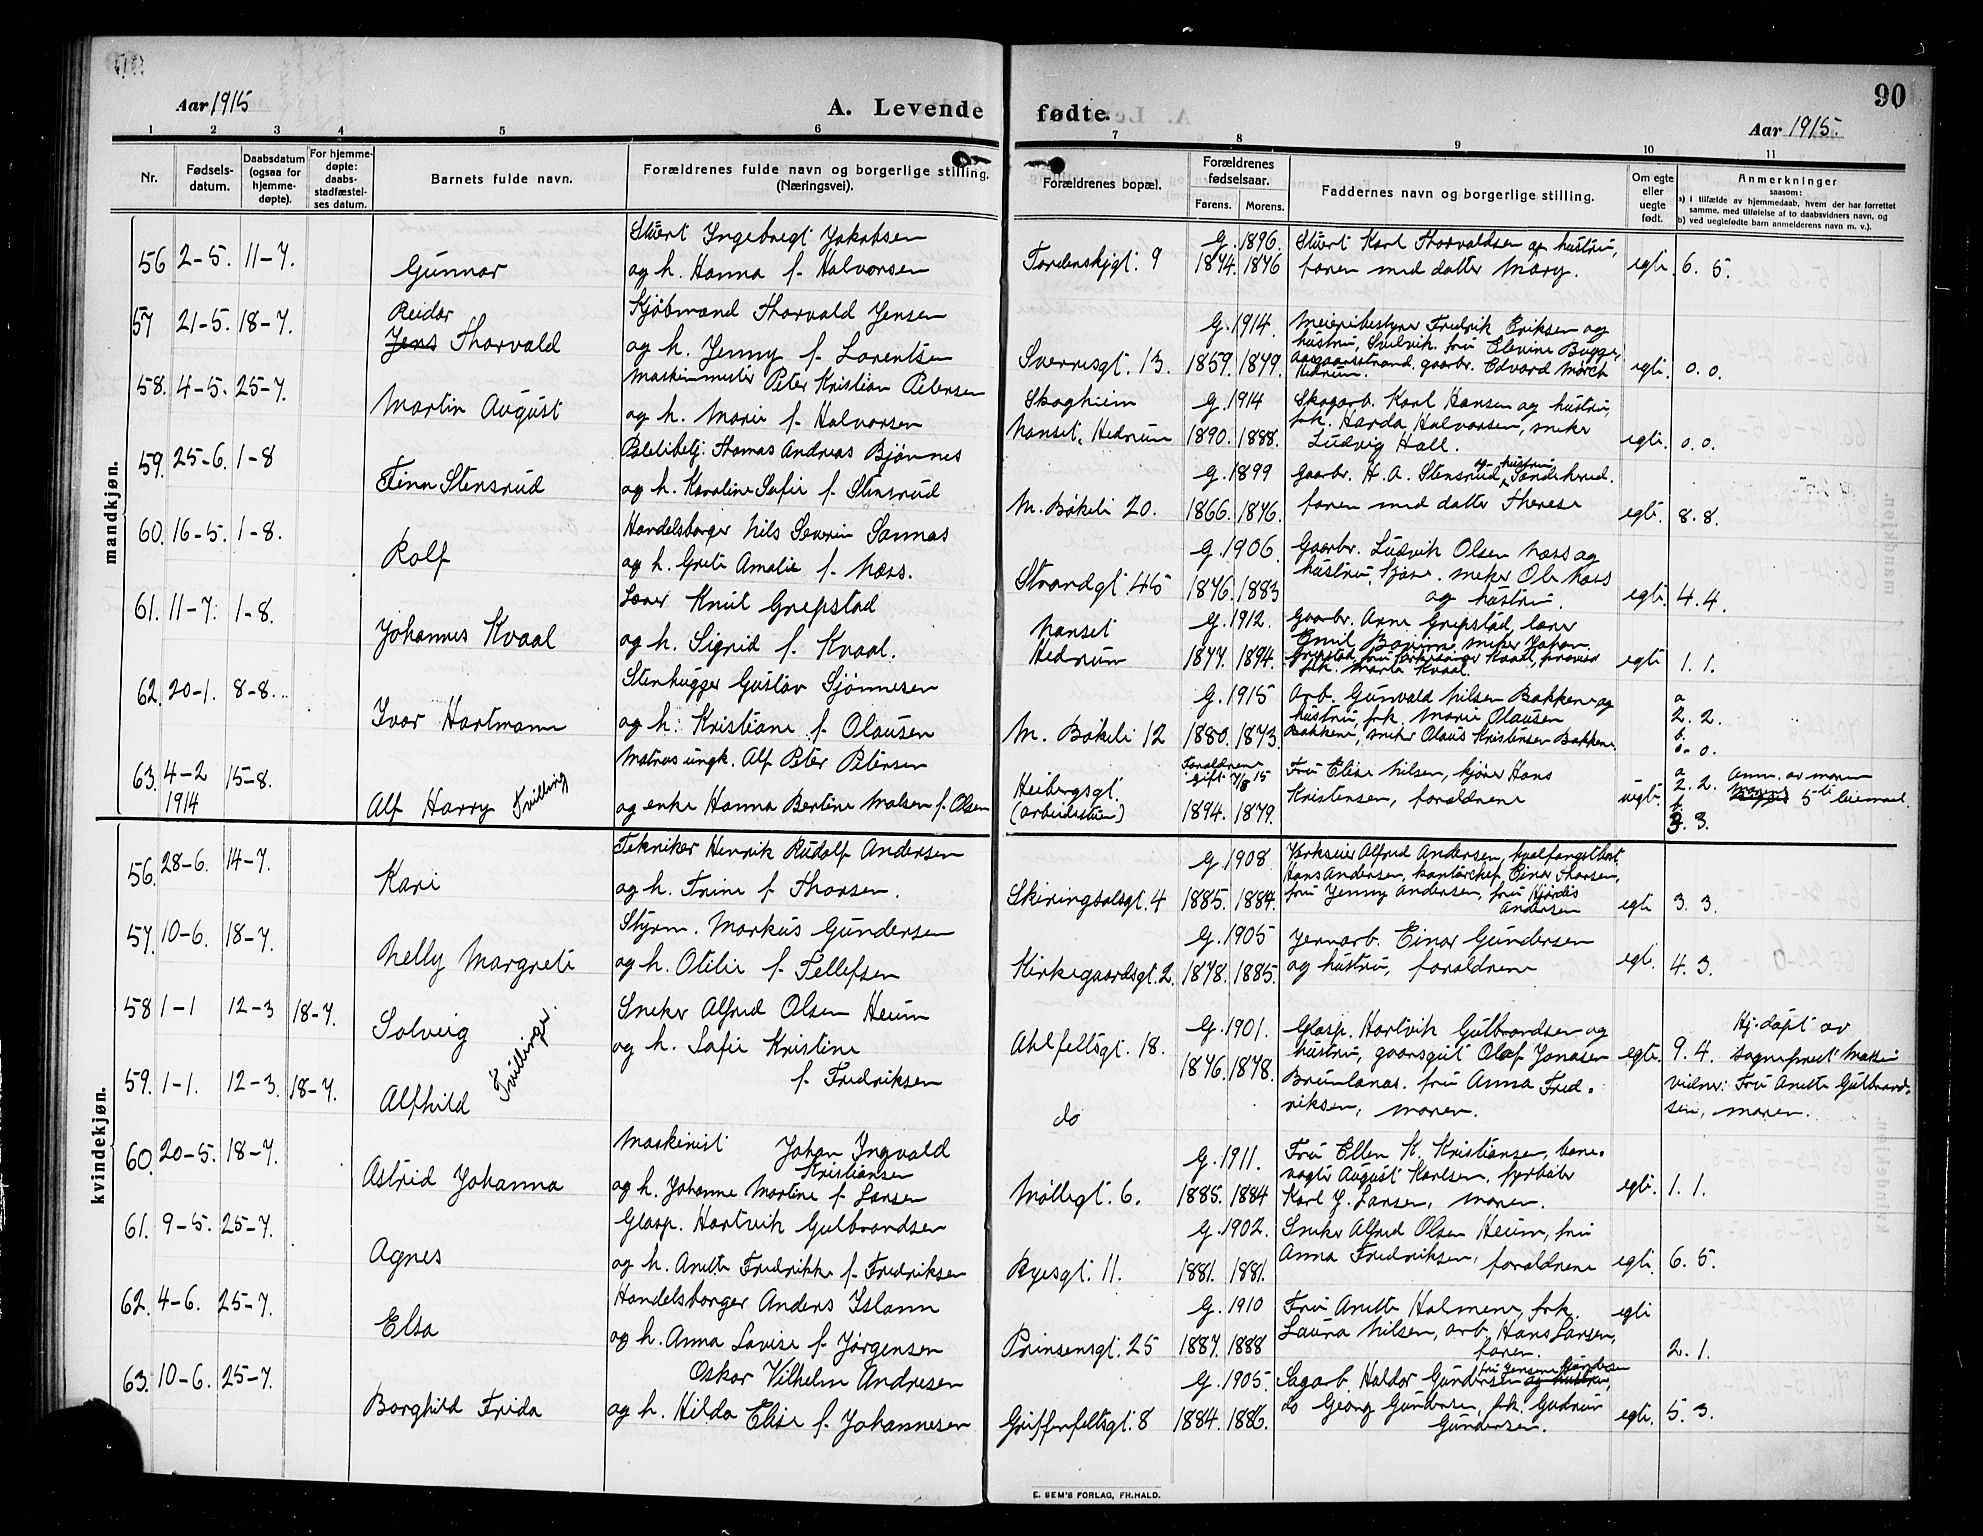 Aar 1915
A. Levende
fødte.
90
Aar 1915.
1 2 3 4 5 6 7 8 9 10 11
Nr.
Fødsels-
datum.
Daabsdatum
(ogsaa for
hjemme-
døpte).
For hjemme-
døpte:
daabs-
stadfæstel-
ses datum.
Barnets fulde navn.
Forældrenes fulde navn og borgerlige stilling.
(Næringsvei).
Forældrenes bopæl.
Forældrenes
fødselsaar.
Farens. Morens.
Faddernes navn og borgerlige stilling.
Om egte
eller
uegte
født.
Anmerkninger
saasom:
a) i tilfælde av hjemmedaab, hvem der har forrettet
samme, med tilføielse af to daabsvidners navn, og
b) ved uegtefødte barn anmelderens navn m. v.).
mandkjøn.
56 2-5. 11-7.
Gunnar
Stuert Ingebregt Jakobsen
og h. Hanna f. Halvorsen
Tordenskjgt. 9
G. 1896.
1874. 1876
Stuert Karl Thorvaldsen og hustru,
faren med datter Mary.
egte. 6. 5.
57 21-5. 18-7.
Reidar
Jens Thorvald
Kjøbmand Thorvald Jensen
og h. Jenny f. Lorentsen
Sverresgt. 13.
G. 1914.
1859. 1879.
Meieribestyrer Fredrik Eriksen og
hustru, fru Elevine Bugge,
Aasgaarstrand, gaarbr. Edvard Mørch
Hedrum.
egte. 0. 0.
58. 4-5. 25-7.
Martin August
Maskinmester Peter Kristian Petersen
og h. Marie f. Halvorsen
Skogheim
Nanset, Hedrum
G. 1914
1890. 1888.
Skogarb. Karl Hansen og hustru,
frk. Harda Halvorsen, snekr
Ludvig Hall.
egte. 0. 0.
59. 25-6. 1-8
Finn Stensrud
Thomas Andreas Bjønnes
og h. Karoline Sofie f. Stensrud
M. Bøkeli 20.
G. 1899
1866. 1876.
Gaarbr. H. A. Stensrud og hustru, Sandeherred.
faren med datter Therese
egte. 8. 8.
60. 16-5. 1-8.
Rolf
Handelsborger Nils Severin Sannas
og h. Grete Amalie f. Næss.
Strandgt. 45
G. 1906
1876. 1883
Gaarbr. Ludvik Olsen Næss og
hustru, Kjose. snekr Ole Næss
og hustru.
egte. 4. 4.
61. 11-7. 1-8.
Johannes Kvaal
Lærer Knut Grepstad
og h. Sigrid f. Kvaal.
Nanset
Hedrum
G. 1912.
1877. 1894.
Gaarbr. Arne Grepstad, lærer
Emil
Grepstad, fru Kvaal,
frk. Marta Kvaal.
egte 1. 1.
62. 20-1. 8-8.
Ivar Hartmann
Stenhugger Gustav Sjønnesen
og h. Kristiane f. Olausen
M. Bøkeli 12
G. 1915
1880. 1873.
Arb. Gunvald Nilsen Bakkene og
hustru, frk. Marie Olausen
Bakkene, snekr Olaus Kristensen Bakkene.
a
2. 2.
b.
0. 0.
63. 4-2
1914
15-8.
Alf Harry Tvilling
Matros ungk. Alf Peter Petersen
og enke Hanna Bertine Madsen f. Olsen
Heibergsgt.
(arbeidsstuen)
Forældrene
gift 7/8 15
1894. 1879.
Fru Elise Nilsen, kjører Hans
Kristensen, forældrene
uegte.
a
2. 2.
b.
3. 3.
Anm. av moren
Morens 5te leiermaal.
kvindekjøn.
56. 28-6. 14-7.
Kari
Tekniker Henrik Rudolf Andersen
og h. Trine f. Thorsen.
Skiringsalsgt. 4
G. 1908
1885. 1884.
Verkseier Alfred Andersen,
Hans Andersen, kontorchef Einar Thorsen,
fru Jenny Andersen, fru Hjørdis
Andersen
egte 3. 3.
57. 10-6. 18-7.
Nelly Margrete
Styrm. Markus Gundersen
og h. Otilie f. Tellefsen
Kirkegaardsgt. 2.
G. 1905
1878. 1885.
Jernarb. Einar Gundersen
og hustru, forældrene
egte. 4. 3.
58 1-1 12-3 18-7.
Solveig
Tvillinger.
Snekr Alfred Olsen Heum
og h. Sofie Kristine
f. Fredriksen
Ahlfeltsgt. 18.
G. 1901.
1876. 1878.
Glasp. Hartvik Gulbrandsen og
hustru, gaarsgut Olaf Jonasen
Brunlanæs. fru Anna Fred-
riksen, moren.
egte. 9. 4.
Hj. døpt av
sogneprest
vidner: Fru Anette Gulbrand-
sen, moren.
59. 1-1. 12-3. 18-7.
Alfhild
do
60. 20-5. 18-7.
Astrid Johanna
Maskinist Johan Ingvald
Kristiansen
og h. Johanne Martine f. Larsen
Møllegt. 6.
G. 1911.
1885. 1884
Fru Ellen K. Kristiansen, bane-
vogter August Karlsen, fyrbøter
Karl J. Larsen, moren.
egte. 1. 1.
61. 9-5. 25-7.
Agnes
Glasp. Hartvik Gulbrandsen
og h. Anette Fredrikke f. Fredriksen
Ryesgt. 11.
G. 1902.
1881. 1881.
Snekr Alfred Olsen Heum, fru
Anna Fredriksen, forældrene
egte. 6. 5.
62. 4-6. 25-7.
Elsa
Handelsborger Anders Islann
og h. Anna Lovise f. Jørgensen
Prinsensgt. 25
G. 1910
1887. 1888
Fru Anette Holmene, frk.
Laura Nilsen, arb. Hans Larsen,
faren.
egte
2. 1.
63. 10-6. 25-7.
Borghild Frida
Oskar Vilhelm Andresen
og h. Hilda Elise f. Johannesen
Griffenfeltsgt. 8
G. 1905.
1884. 1886.
Sagarb. Haldor Gundersen og hustru,
do Georg Gundersen, frk. Gudrun
Gundersen.
egte. 5. 3.
E. SEM'S FORLAG, FR.HALD.